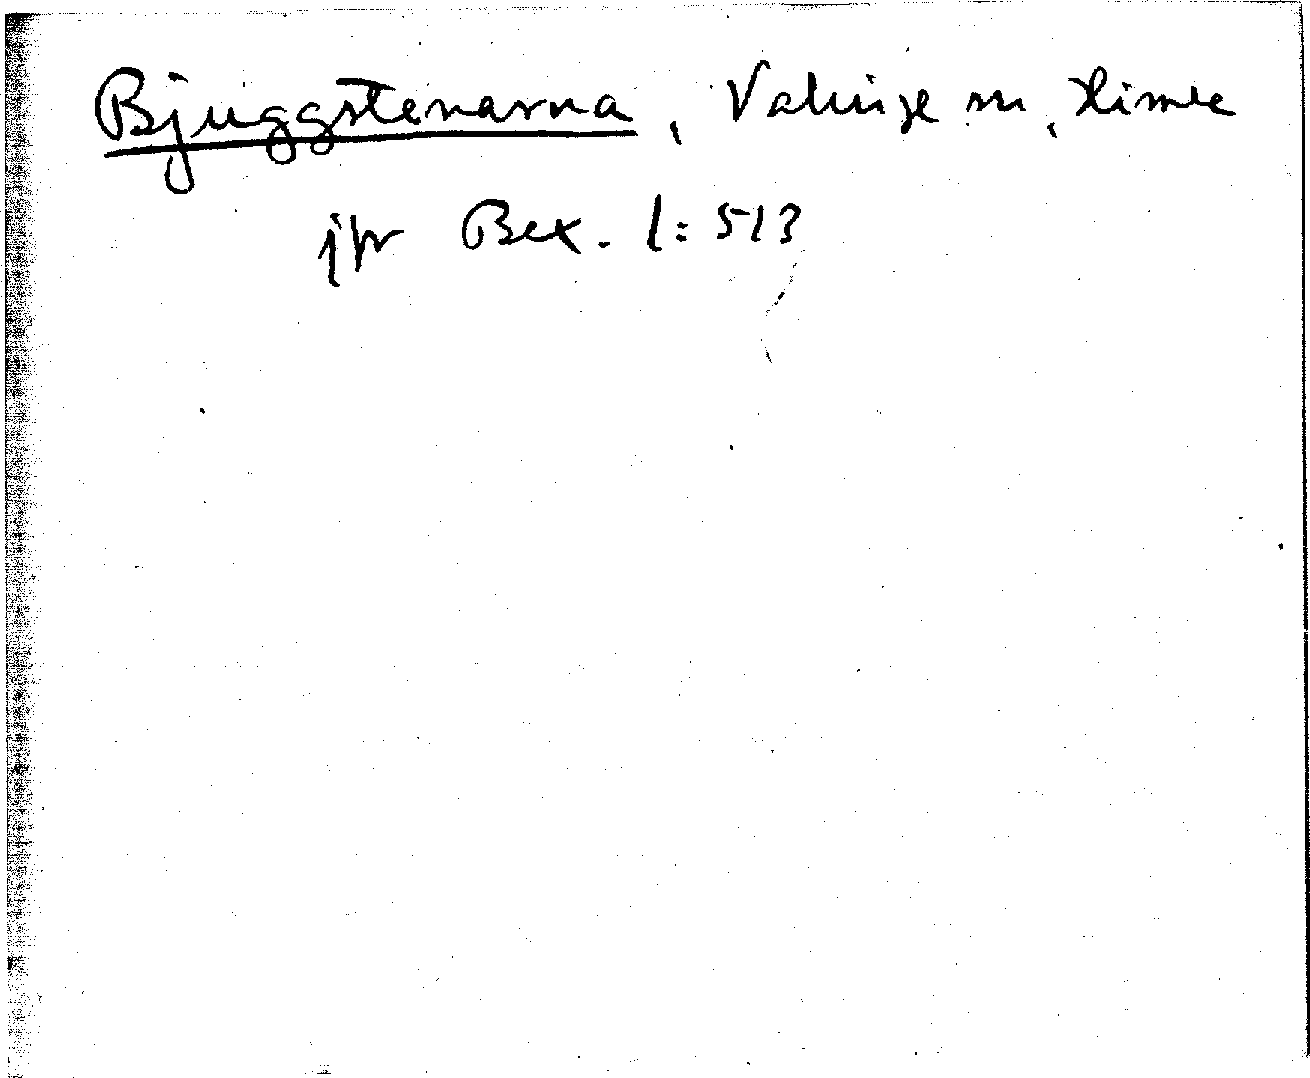 Bjuggstenarna, Valinge sn, Himle
jfr Bex. 1:513